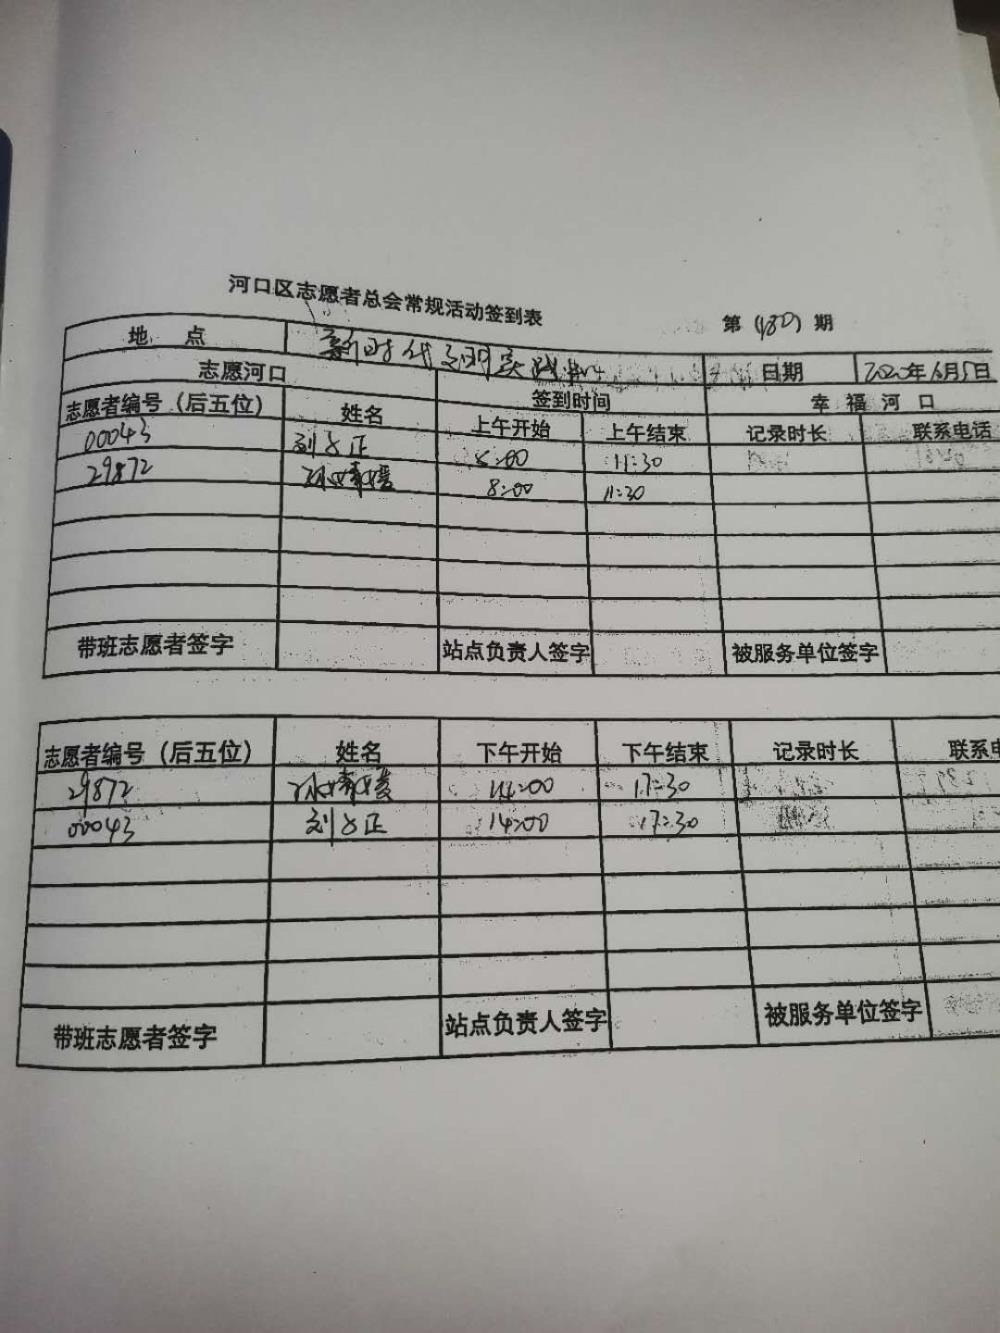 河口区志愿者总会常规活动签到表
第 (480) 期
地 点 新时代文明实践中心 日期 2020年6月5日
志愿河口 签到时间 幸 福 河 口
志愿者编号（后五位） 姓名 上午开始 上午结束 记录时长 联系电话
00043 刘文正 8:00 11:30
29872 8:00 11:30
带班志愿者签字 站点负责人签字 被服务单位签字
志愿者编号（后五位） 姓名 下午开始 下午结束 记录时长 联系电
29872 14:00 17:30
00043 刘文正 14:00 17:30
带班志愿者签字 站点负责人签字 被服务单位签字